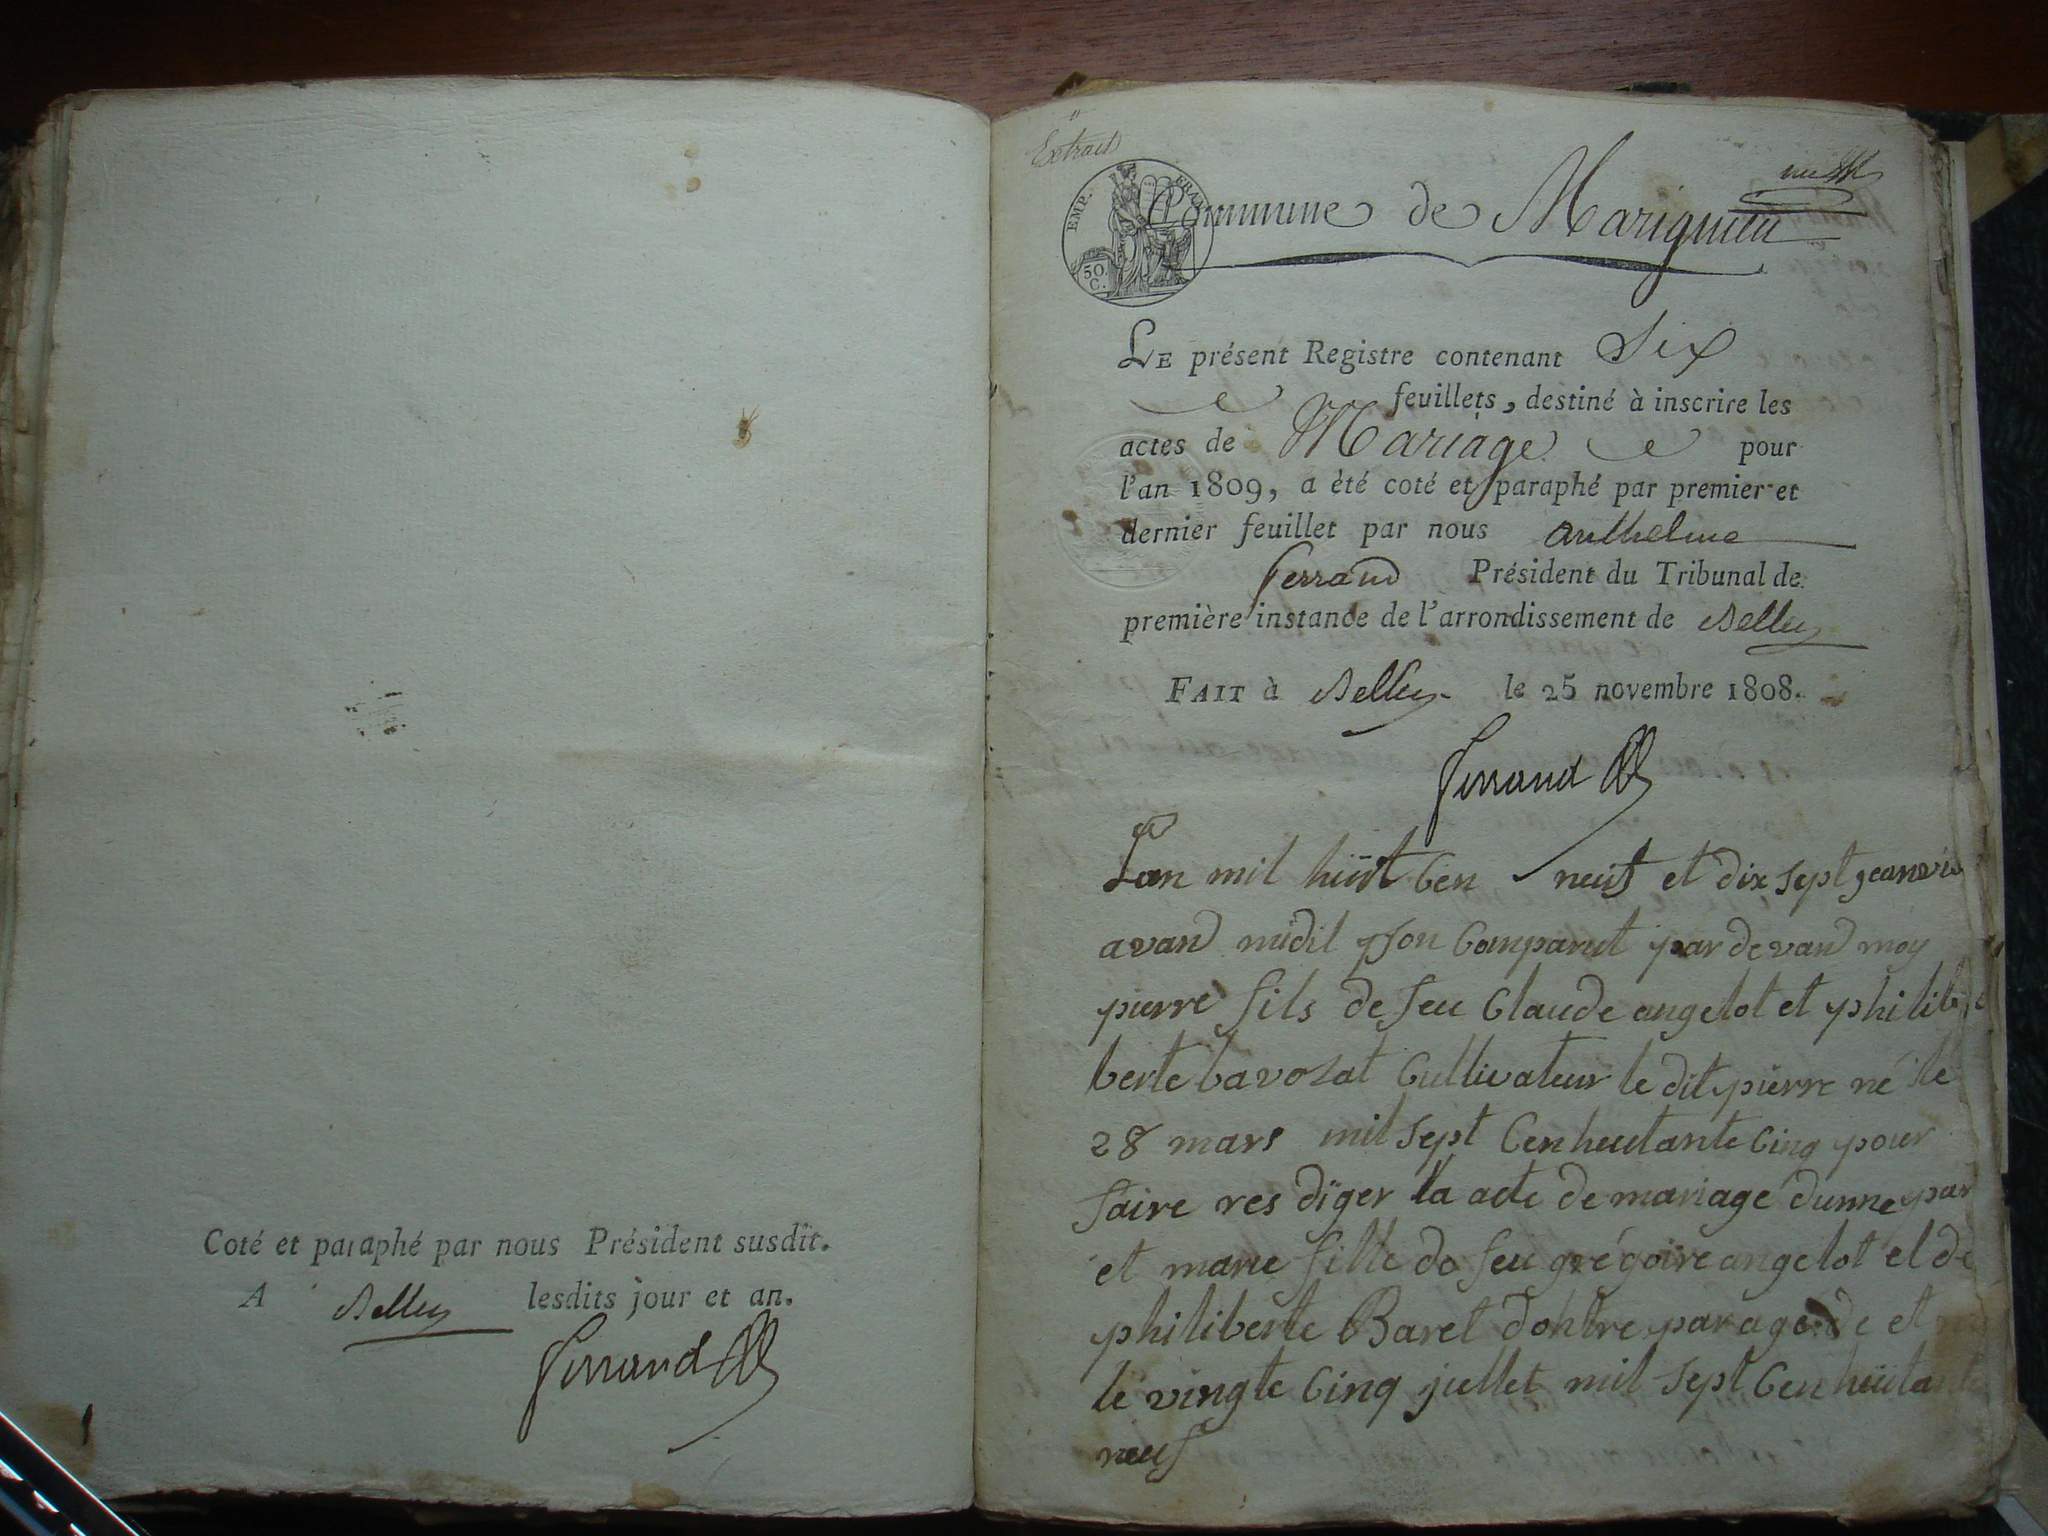 Coté et paraphé par nous Président susdit.
A Belley lesdits jour et an.
Ferrand
Extrait
EMP. FRAN.
50 C.
Commune de Marignieu
LE présent Registre contenant Six
feuillets, destiné à inscrire les
actes de Mariage pour
l'an 1809, a été coté et paraphé par premier et
dernier feuillet par nous anthelme
ferrand Président du Tribunal de
première instance de l'arrondissement de Belley
FAIT à Belley le 25 novembre 1808.
Ferrand
Lan mil huit Cen neuf et dix sept
avand midil son Comparut par devand moy
pierre fils de feu Claude angelot et philib
berte Cultivateur le dit pierre né le
28 mars mil sept Cen heutante Cinq pour
faire res diger la acte de mariage dunne par
et marie fille de feu grégoire angelot et de
philiberte Baret dohtre par et
le vingte Cinq juellet mil sept Cen heutante
neuf